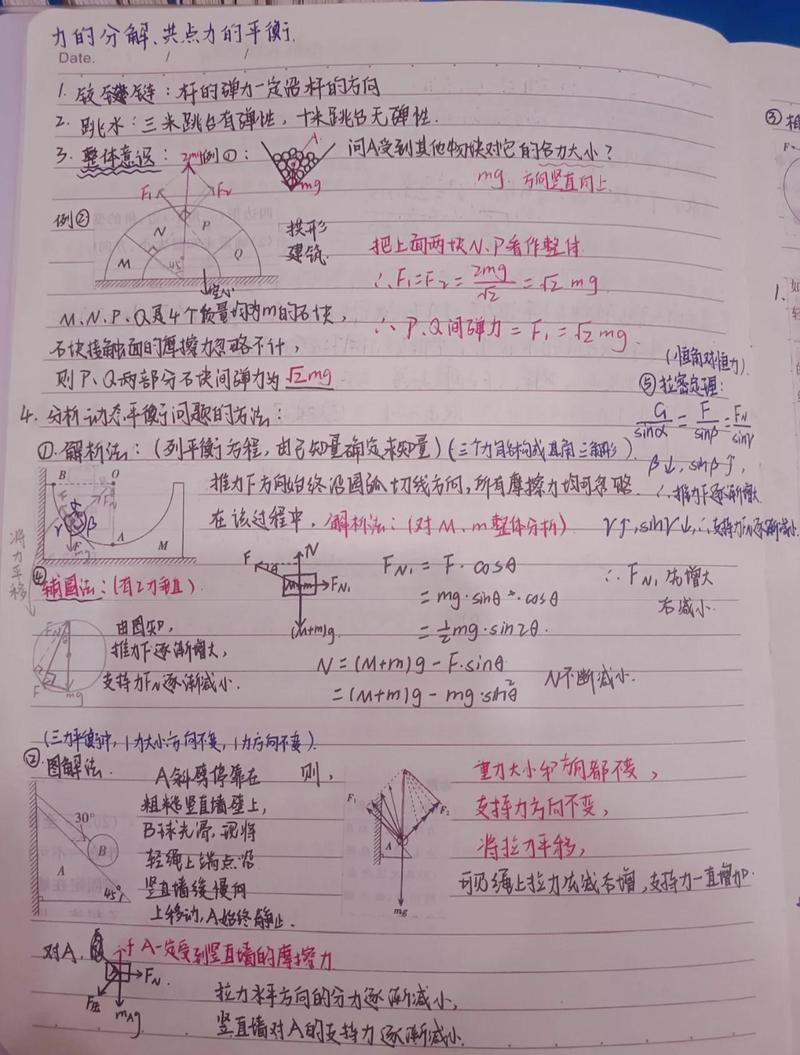 力的分解、共点力的平衡.
Date. / /
1. 铰链：杆的弹力一定沿杆的方向
2. 跳水：三米跳台有弹性，十米跳台无弹性.
3. 整体意识：例①：
问A受到其他物块对它的合力大小？
mg
mg. 方向竖直向上.
2mg
F₁
F₂
例②
M
N
P
Q
45°
拱形
建筑.
把上面两块N、P看作整体
∴F₁=F₂=2mg/√2=√2 mg
M、N、P、Q是4个质量均为m的石块，
∴P、Q间弹力=F₁=√2 mg.
石块接触面的摩擦力忽略不计，
则P、Q两部分石块间弹力为√2mg
4. 分析动态平衡问题的方法：
①.解析法：(列平衡方程，由已知量确定未知量)(三个力自始构成直角三角形)
(恒角对恒力)
⑤拉密定理：
G/sinα=F/sinβ=FN/sinγ
β↓, sinβ↑,
∴推力F逐渐增大
γ↑, sinγ↓, ∴支持力FN逐渐减小.
B
O
A
M
γ
β
mg
推力F方向始终沿圆弧切线方向，所有摩擦力均可忽略
在该过程中，解析法：(对M、m整体分析)
F
N
M+m
FN₁
(M+m)g
FN₁=F·cosθ
=mg·sinθ·cosθ
=½mg·sin2θ.
∴FN₁先增大
后减小.
N=(M+m)g-F·sinθ
=(M+m)g-mg·sin²θ
N不断减小.
将力平移
④辅圆法：(有2力垂直)
FN
F
mg
由图知，
推力F逐渐增大，
支持力FN逐渐减小.
(三力平衡中，1力大小方向不变，1力方向不变).
②图解法.
30°
B
A
45°
A斜劈停靠在
粗糙竖直墙壁上，
B球光滑，现将
轻绳上端点沿
竖直墙缓慢向
上移动，A始终静止.
则，
F₁
F₂
A
mg
重力大小和方向都不变，
支持力方向不变，
将拉力平移，
可见绳上拉力先减后增，支持力一直增加.
对A，
f
A一定受到竖直墙的摩擦力
FN
F压
mAg
拉力水平方向的分力逐渐减小，
竖直墙对A的支持力逐渐减小.
③相
1.